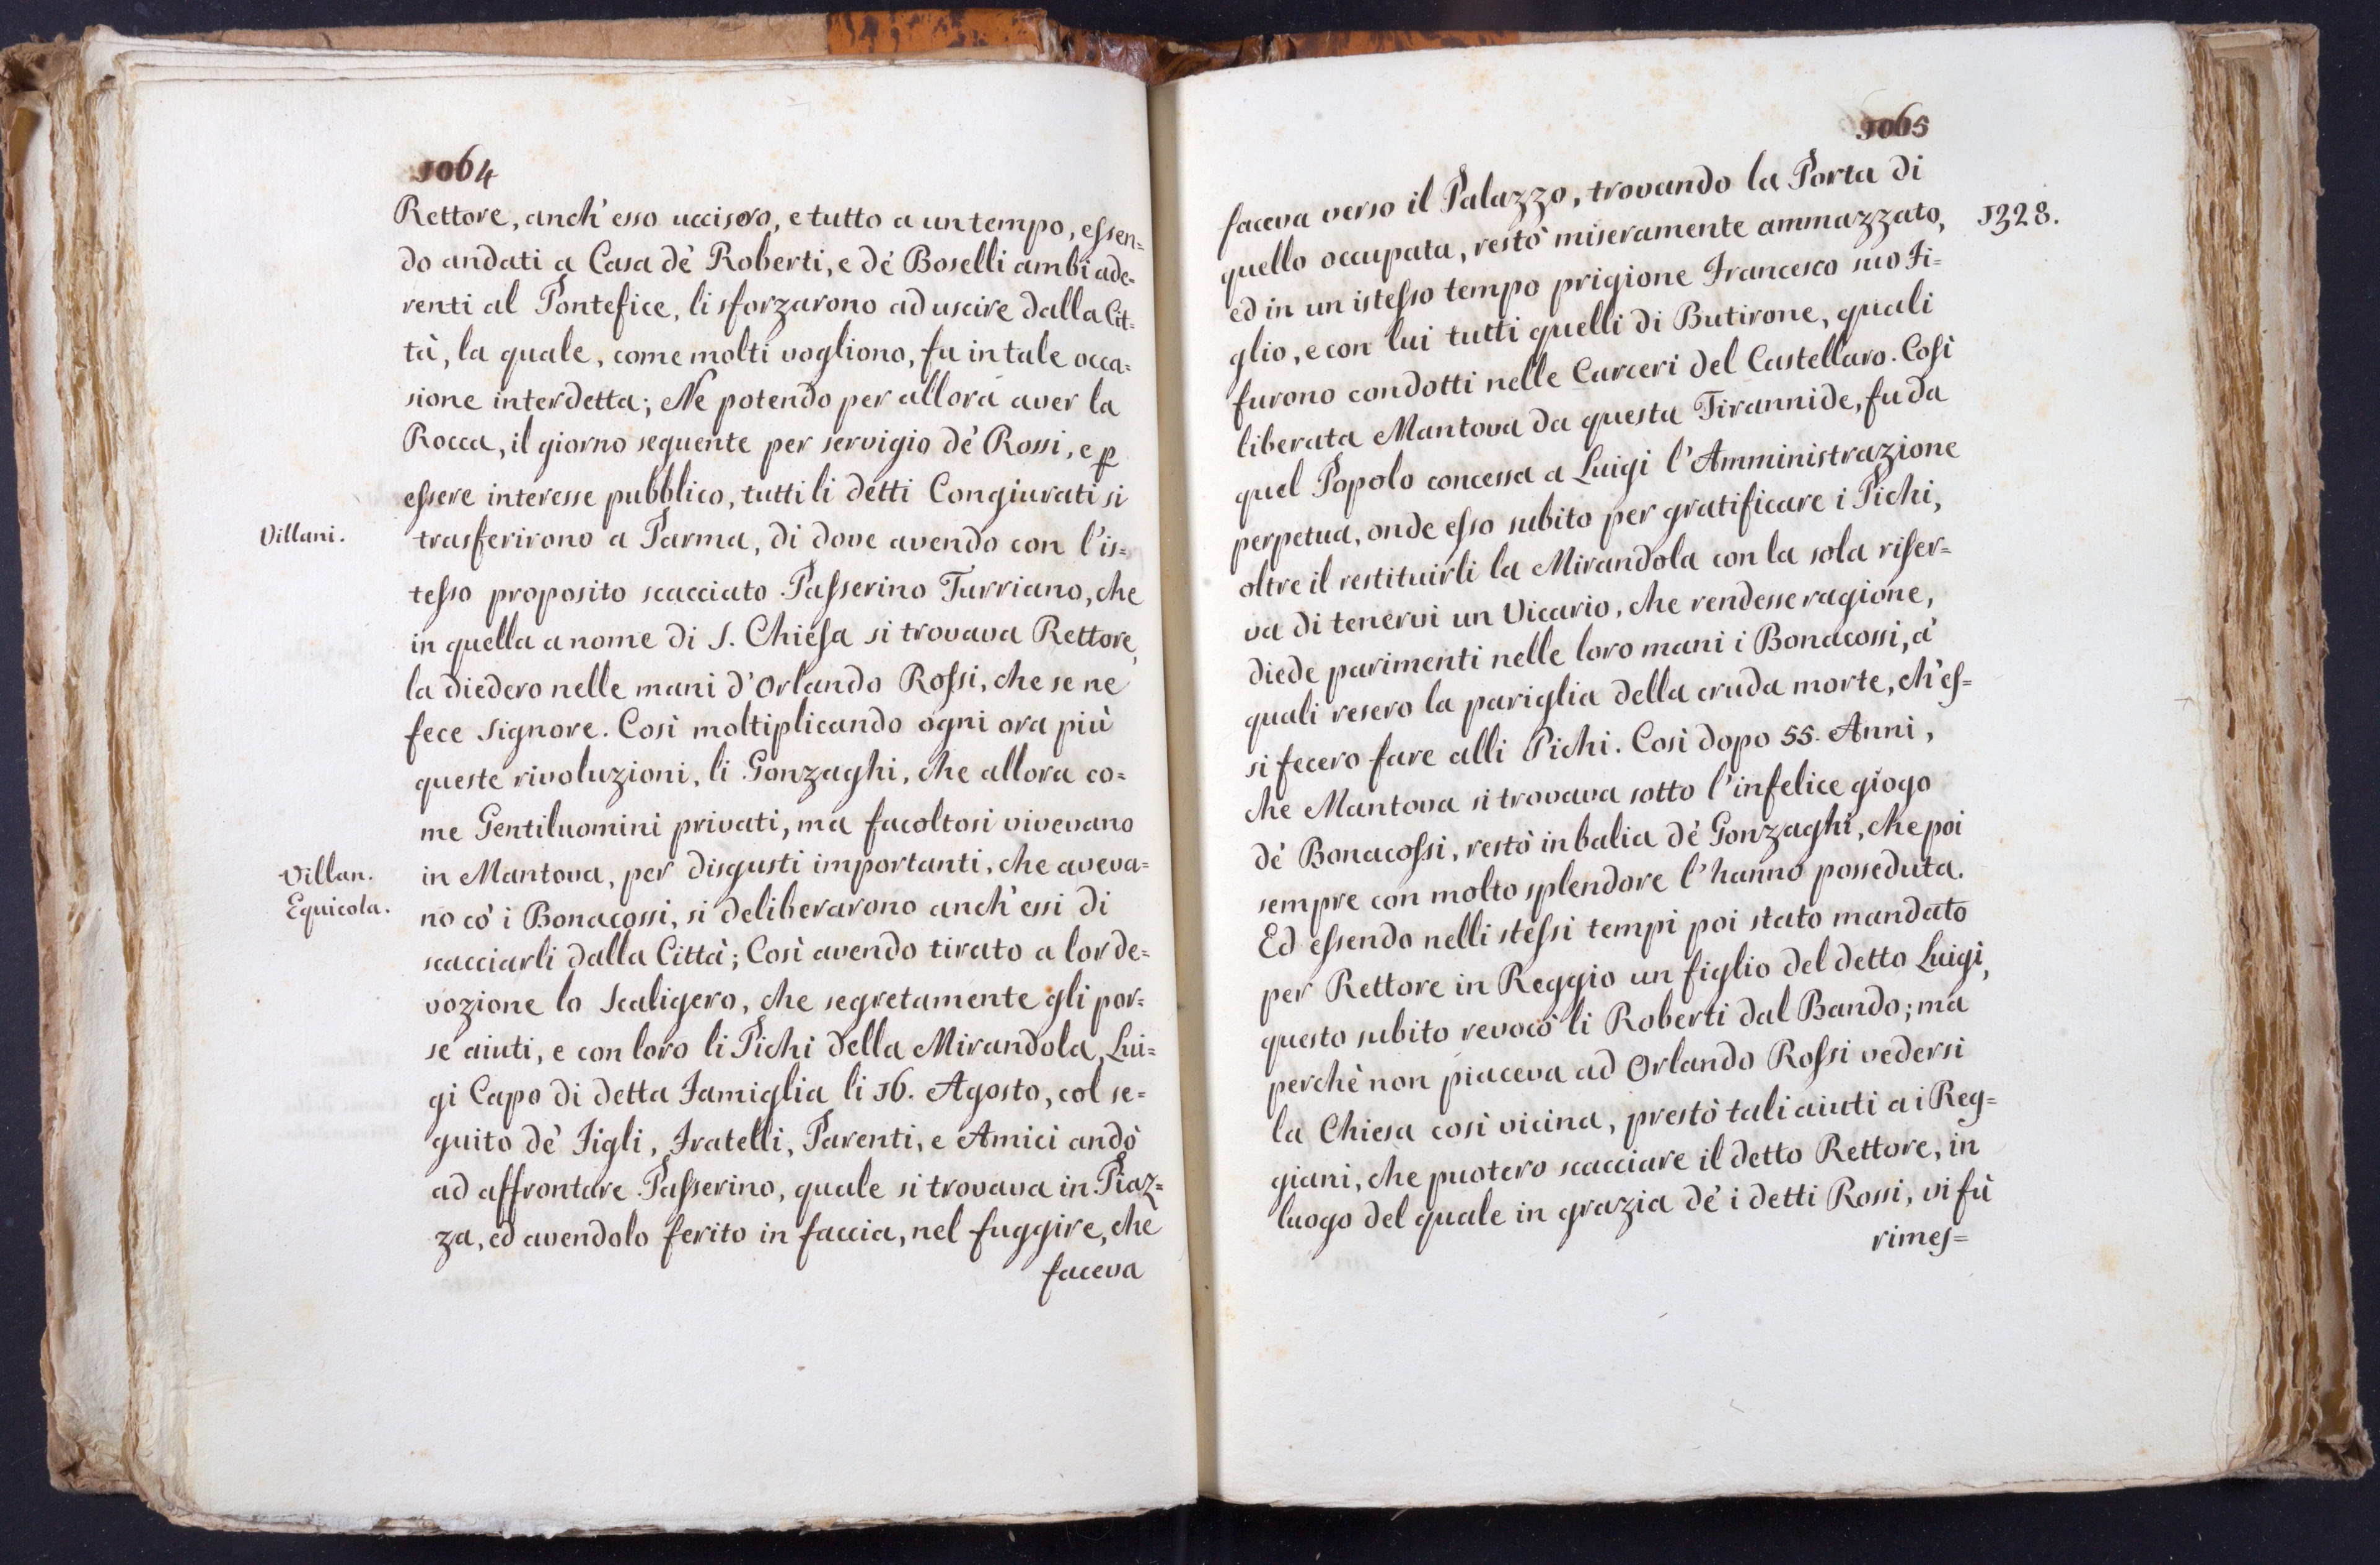 1064
Rettore, anch' esso ucciso, e tutto a un tempo, essen=
do andati a Casa dè Roberti, e dè Boselli ambi ade=
renti al Pontefice, li sforzarono ad uscire dalla Cit=
tà, la quale, come molti vogliono, fu in tale occa=
sione interdetta; Ne potendo per allora aver la
Rocca, il giorno seguente per servigio dè Rossi, e ꝑ
essere interesse pubblico, tutti li detti Congiurati si
Villani.
trasferirono a Parma, di dove avendo con l'is=
tesso proposito scacciato Passerino Turriano, che
in quella a nome di S. Chiesa si trovava Rettore,
la diedero nelle mani d'Orlando Rossi, che se ne
fece Signore. Così moltiplicando ogni ora più
queste rivoluzioni, li Gonzaghi, che allora co=
me Gentiluomini privati, ma facoltosi vivevano
Villan.
Equicola.
in Mantova, per disgusti importanti, che aveva=
no cò i Bonacossi, si deliberarono anch' essi di
scacciarli dalla Città; Così avendo tirato a lor de=
vozione lo Scaligero, che segretamente gli por=
se aiuti, e con loro li Pichi della Mirandola, Lui=
gi Capo di detta Famiglia li 16. Agosto, col se=
guito dè Figli, Fratelli, Parenti, e Amici andò
ad affrontare Passerino, quale si trovava in Piaz=
za, ed avendolo ferito in faccia, nel fuggire, che
faceva
1065
1328.
faceva verso il Palazzo, trovando la Porta di
quello occupata, restò miseramente ammazzato,
ed in un istesso tempo prigione Francesco suo Fi=
glio, e con lui tutti quelli di Butirone, quali
furono condotti nelle Carceri del Castellaro. Così
liberata Mantova da questa Tirannide, fu da
quel Popolo concessa a Luigi l'Amministrazione
perpetua, onde esso subito per gratificare i Pichi,
oltre il restituirli la Mirandola con la sola riser=
va di tenervi un Vicario, che rendesse ragione,
diede parimenti nelle loro mani i Bonacossi, à
quali resero la pariglia della cruda morte, ch'es=
si fecero fare alli Pichi. Così dopo 55. Anni,
che Mantova si trovava sotto l'infelice giogo
dè Bonacossi, restò in balia dè Gonzaghi, che poi
sempre con molto splendore l'hanno posseduta.
Ed essendo nelli stessi tempi poi stato mandato
per Rettore in Reggio un figlio del detto Luigi,
questo subito revocò li Roberti dal Bando; ma
perchè non piaceva ad Orlando Rossi vedersi
la Chiesa così vicina, prestò tali aiuti a i Reg=
giani, che puotero scacciare il detto Rettore, in
luogo del quale in grazia dè i detti Rossi, vi fù
rimes=